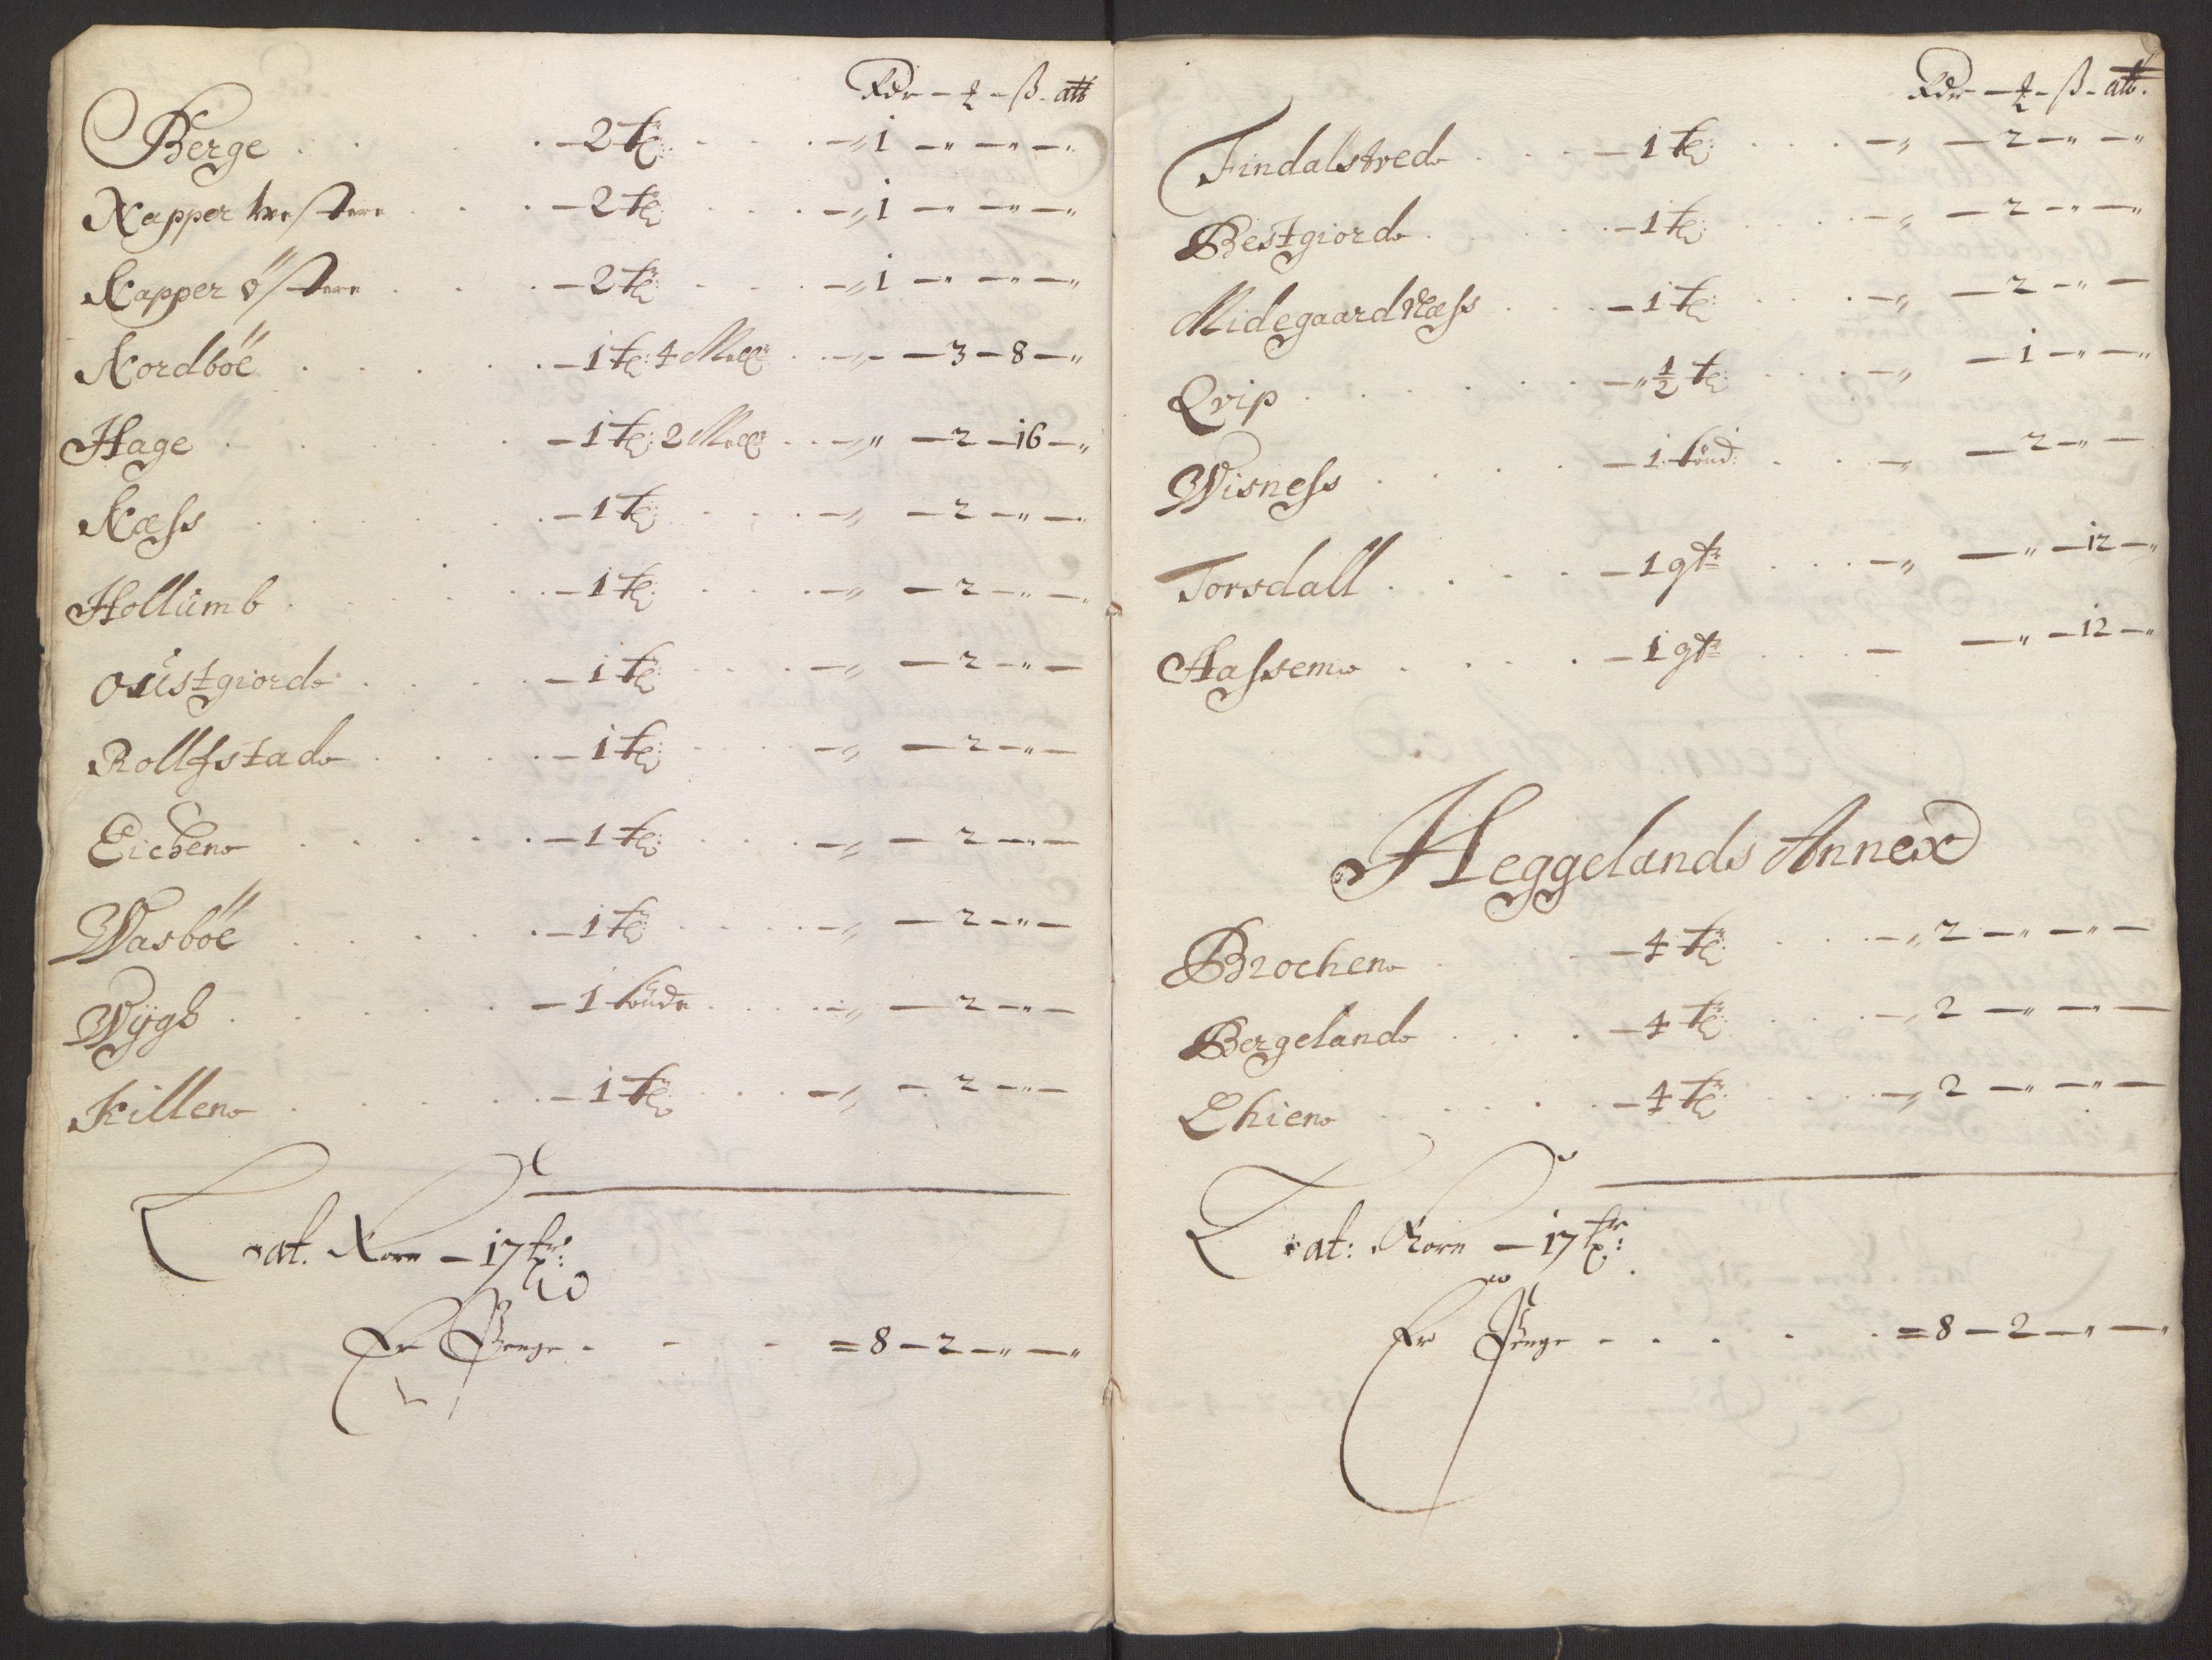 Rdr – ꝣ – ß – alb
Berge . . . – 2 tr: . . . – „ 1 – „ – „ – „
Napper vestere . . . – 2 tr: . . . – „ 1 – „ – „ – „
Napper östere . . . – 2 tr: . . . – „ 1 – „ – „ – „
Nordböe . . . – 1 tr: 4 . . . – „ – 3 – 8 – „
Hage . . . – 1 tr: 2 . . . – „ – 2 – 16 – „
Næss . . . – 1 tr: . . . – „ – 2 – „ –
Hollumb . . . – 1 tr: . . . – „ – 2 – „ –
Oustgiord . . . – 1 tr: . . . – „ – 2 – „ –
Rollfstad . . . – 1 tr: . . . – „ – 2 – „ –
Eichen . . . – 1 tr: . . . – „ – 2 – „ –
Wasböe . . . – 1 tr: . . . – „ – 2 – „ –
Wÿgh . . . – 1 . . . – „ – 2 – „ –
Killen . . . – 1 tr: . . . – „ – 2 – „ –
Lat. Korn – 17 tr:
Er Penge . . . = 8 – 2 – „ – „
Rdr – ꝣ – ß – alb.
Findalstved . . . – 1 tr: . . . – „ – 2 – „ – „
Bestgiord . . . – 1 tr: . . . – „ – 2 – „ – „
Midegaard Næss . . . – 1 tr: . . . – „ – 2 – „ –
Qvip . . . – „ ½ tr: . . . – „ – 1 – „ – „
Wisness . . . – 1 . . . – „ – 2 – „ –
Torsdall . . . – 1 gtr . . . – „ – „ – 12 – „
Hassem . . . – 1 gtr . . . – – „ – 12 – „
Heggelands Annex
Brochen . . . – 4 tr: . . . – „ 2 – „ – „ –
Bergeland . . . – 4 tr: . . . – „ 2 – „ – „ –
Ehien . . . – 4 tr: . . . – „ 2 – „ – „ –
Lat: Korn – 17 tr:
Er Penge . . . = 8 – 2 – „ – „